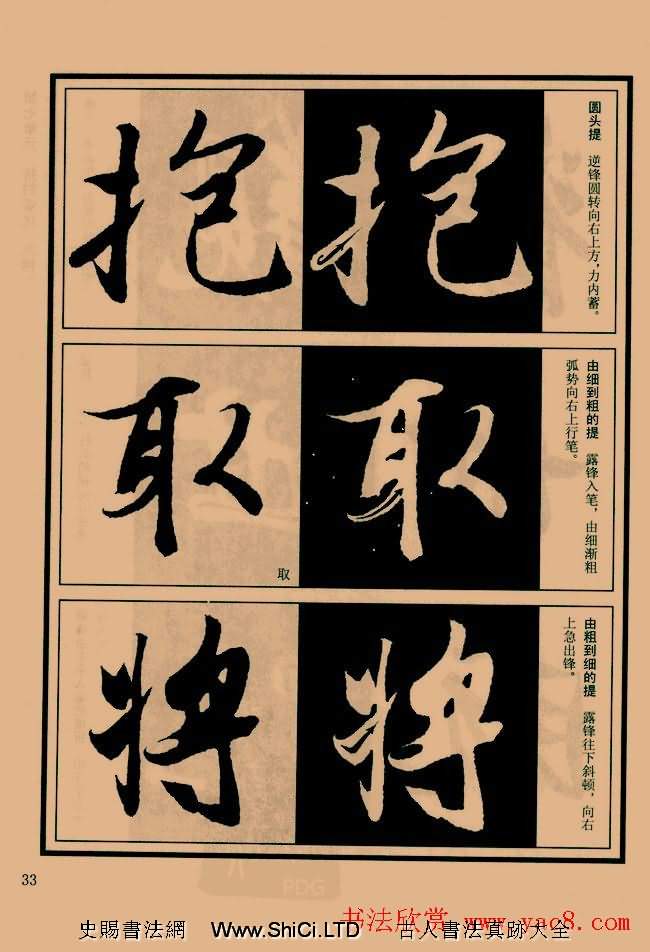 抱 抱
圆头提 逆锋圆转向右上方，力内蓄。
取 取
取
由细到粗的提 露锋入笔，由细渐粗
弧势向右上行笔。
将 将
由粗到细的提 露锋往下斜顿，向右
上急出锋。
33
PDG
书法欣赏 www.yac8.com
史賜書法網 Www.ShiCi.LTD 古人書法真跡大全